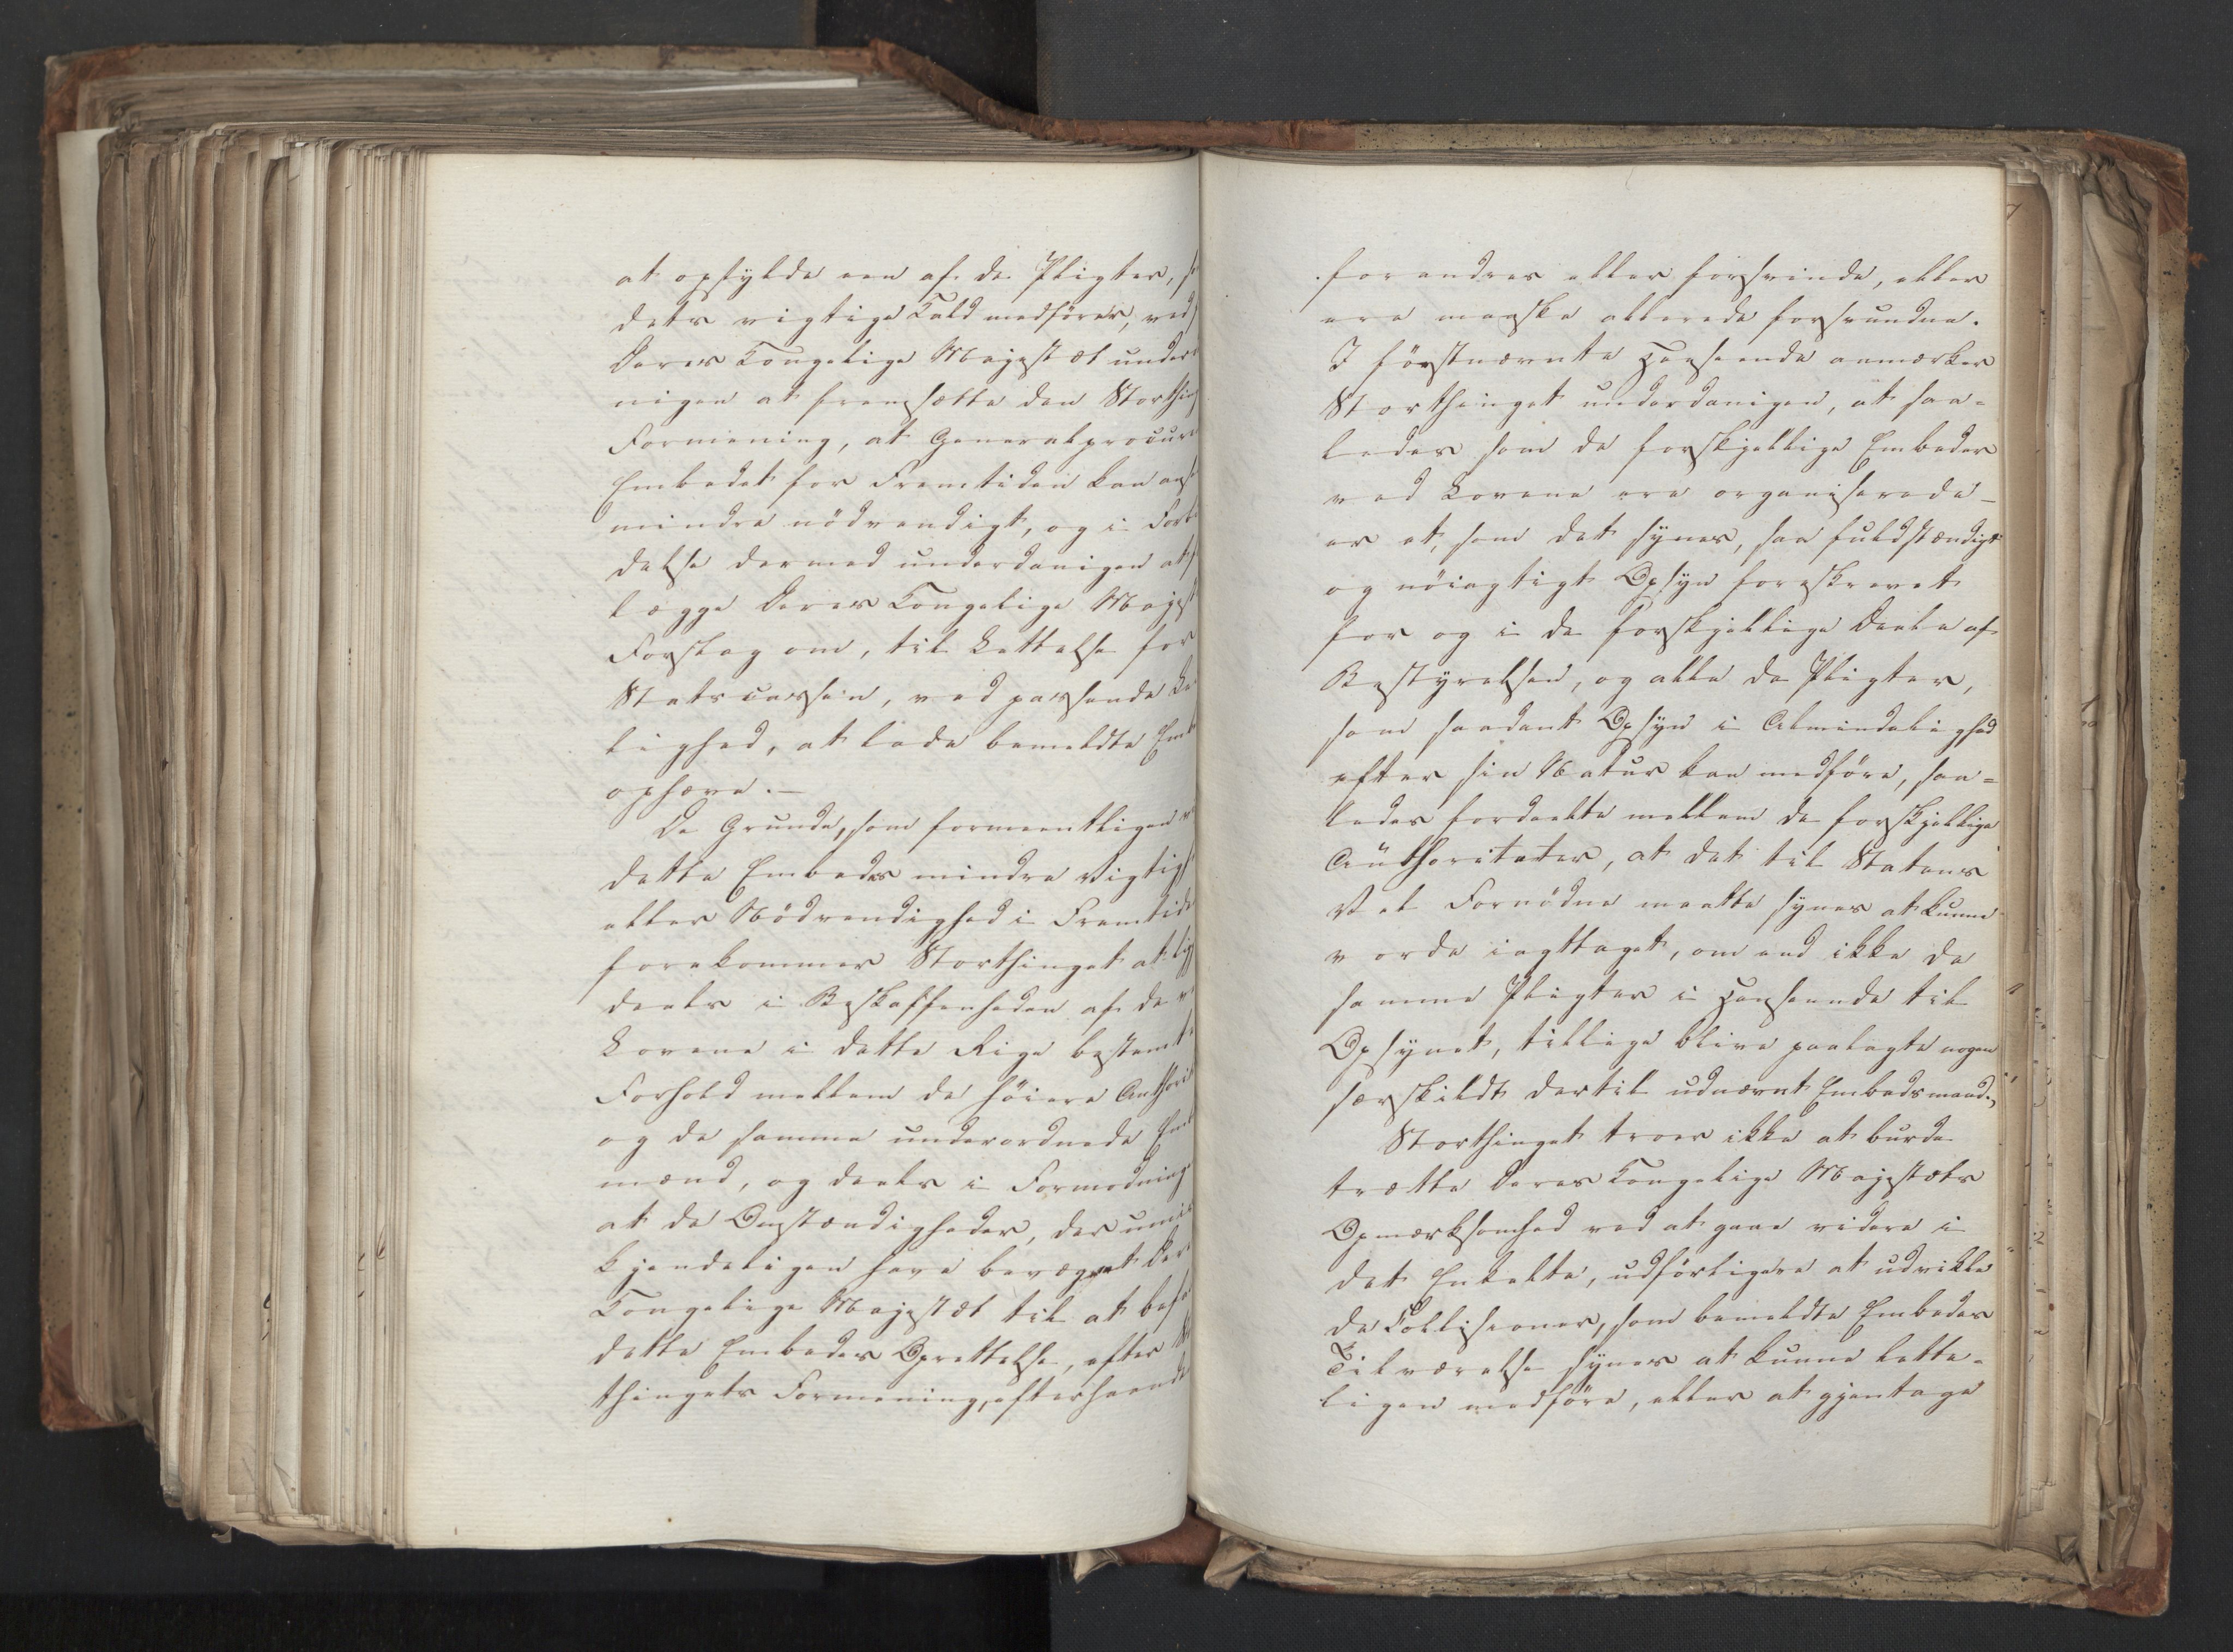 at opfylde een af de Pligter, s
dets vigtige Kald medfører, ved
Deres Kongelige Majestæt under
nigen at fremsætte den Storthing
Formening, at Generalprocure
Embedet for Fremtiden kan ans
mindre nödvendigt, og i Forb
delse dermed underdanigen at
lægge Deres Kongelige Majest
Forslag om, til Lettelse for
Statscassen, ved passende Le
lighed, at lade bemeldte Emb
ophæve.—
De Grunde, som formeentligen v
dette Embedes mindre Vigtigh
eller Nödvendighed i Fremtide
forekommer Storthinget at ligg
deels i Beskaffenheden af de v
Lovene i dette Rige bestemt
Forhold mellem de höiere Authorit
og de samme underordnede Emb
mænd, og deels i Formodning
at de Omstændigheder, der umis
kjendeligen have bevæget De
Kongelige Majestæt til at bef
dette Embedes Oprettelse, efter St
thingets Formening, efterhaande
forandres eller forsvinde, eller
ere maaske allerede forsvundne.
I förstnævnte Henseende anmærker
Storthinget underdanigen, at saa=
ledes som de forskjellige Embeder
ved Lovene ere organiserede—
er et, som det synes, saa fuldstændigt
og nöiagtigt Opsyn foreskrevet
for og i de forskjellige Deele af
Bestyrelsen, og alle de Pligter,
som saadant Opsyn i Almindelighed
efter sin Natur kan medföre, saa=
ledes fordeelte mellem de forskjellige
Authoriteter, at det til Statens
Vel Fornödne maatte synes at kunne
vorde iagttaget, om end ikke de
samme Pligter i Henseende til
Opsynet, tillige blive paalagte nogen
særskildt dertil udnævnt Embedsmand.
Storthinget troer ikke at burde
trætte Deres Kongelige Majestæts
Opmærksomhed ved at gaae videre i
det Enkelte, udförligere at udvikle
de Collisioner, som bemeldte Embedes
Tilværelse synes at kunne lette=
ligen medföre, eller at gjentage